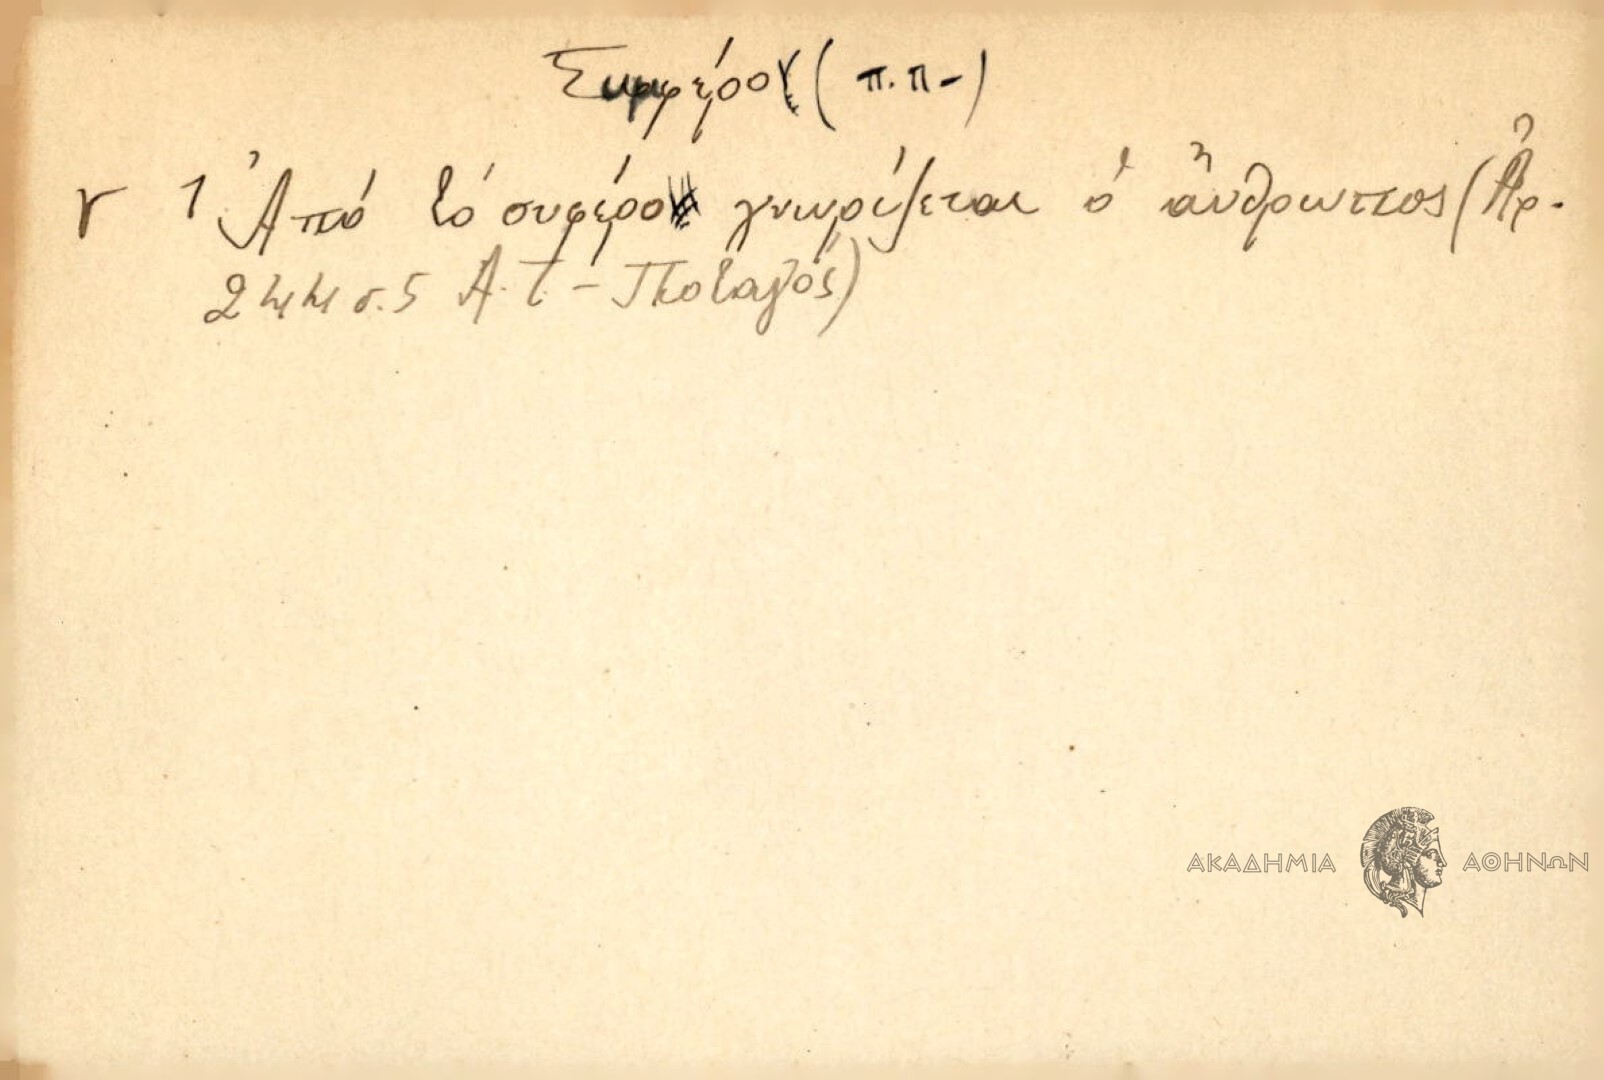 Συμφέρον (π.π-)
γ 1 Ἀπό τό συφέρο γνωρίζεται ὁ ἄνθρωπος (Ἀρ.
244 σ.5 Α.Τ. - Ποταγός)
ΑΚΑΔΗΜΙΑ ΑΘΗΝΩΝ